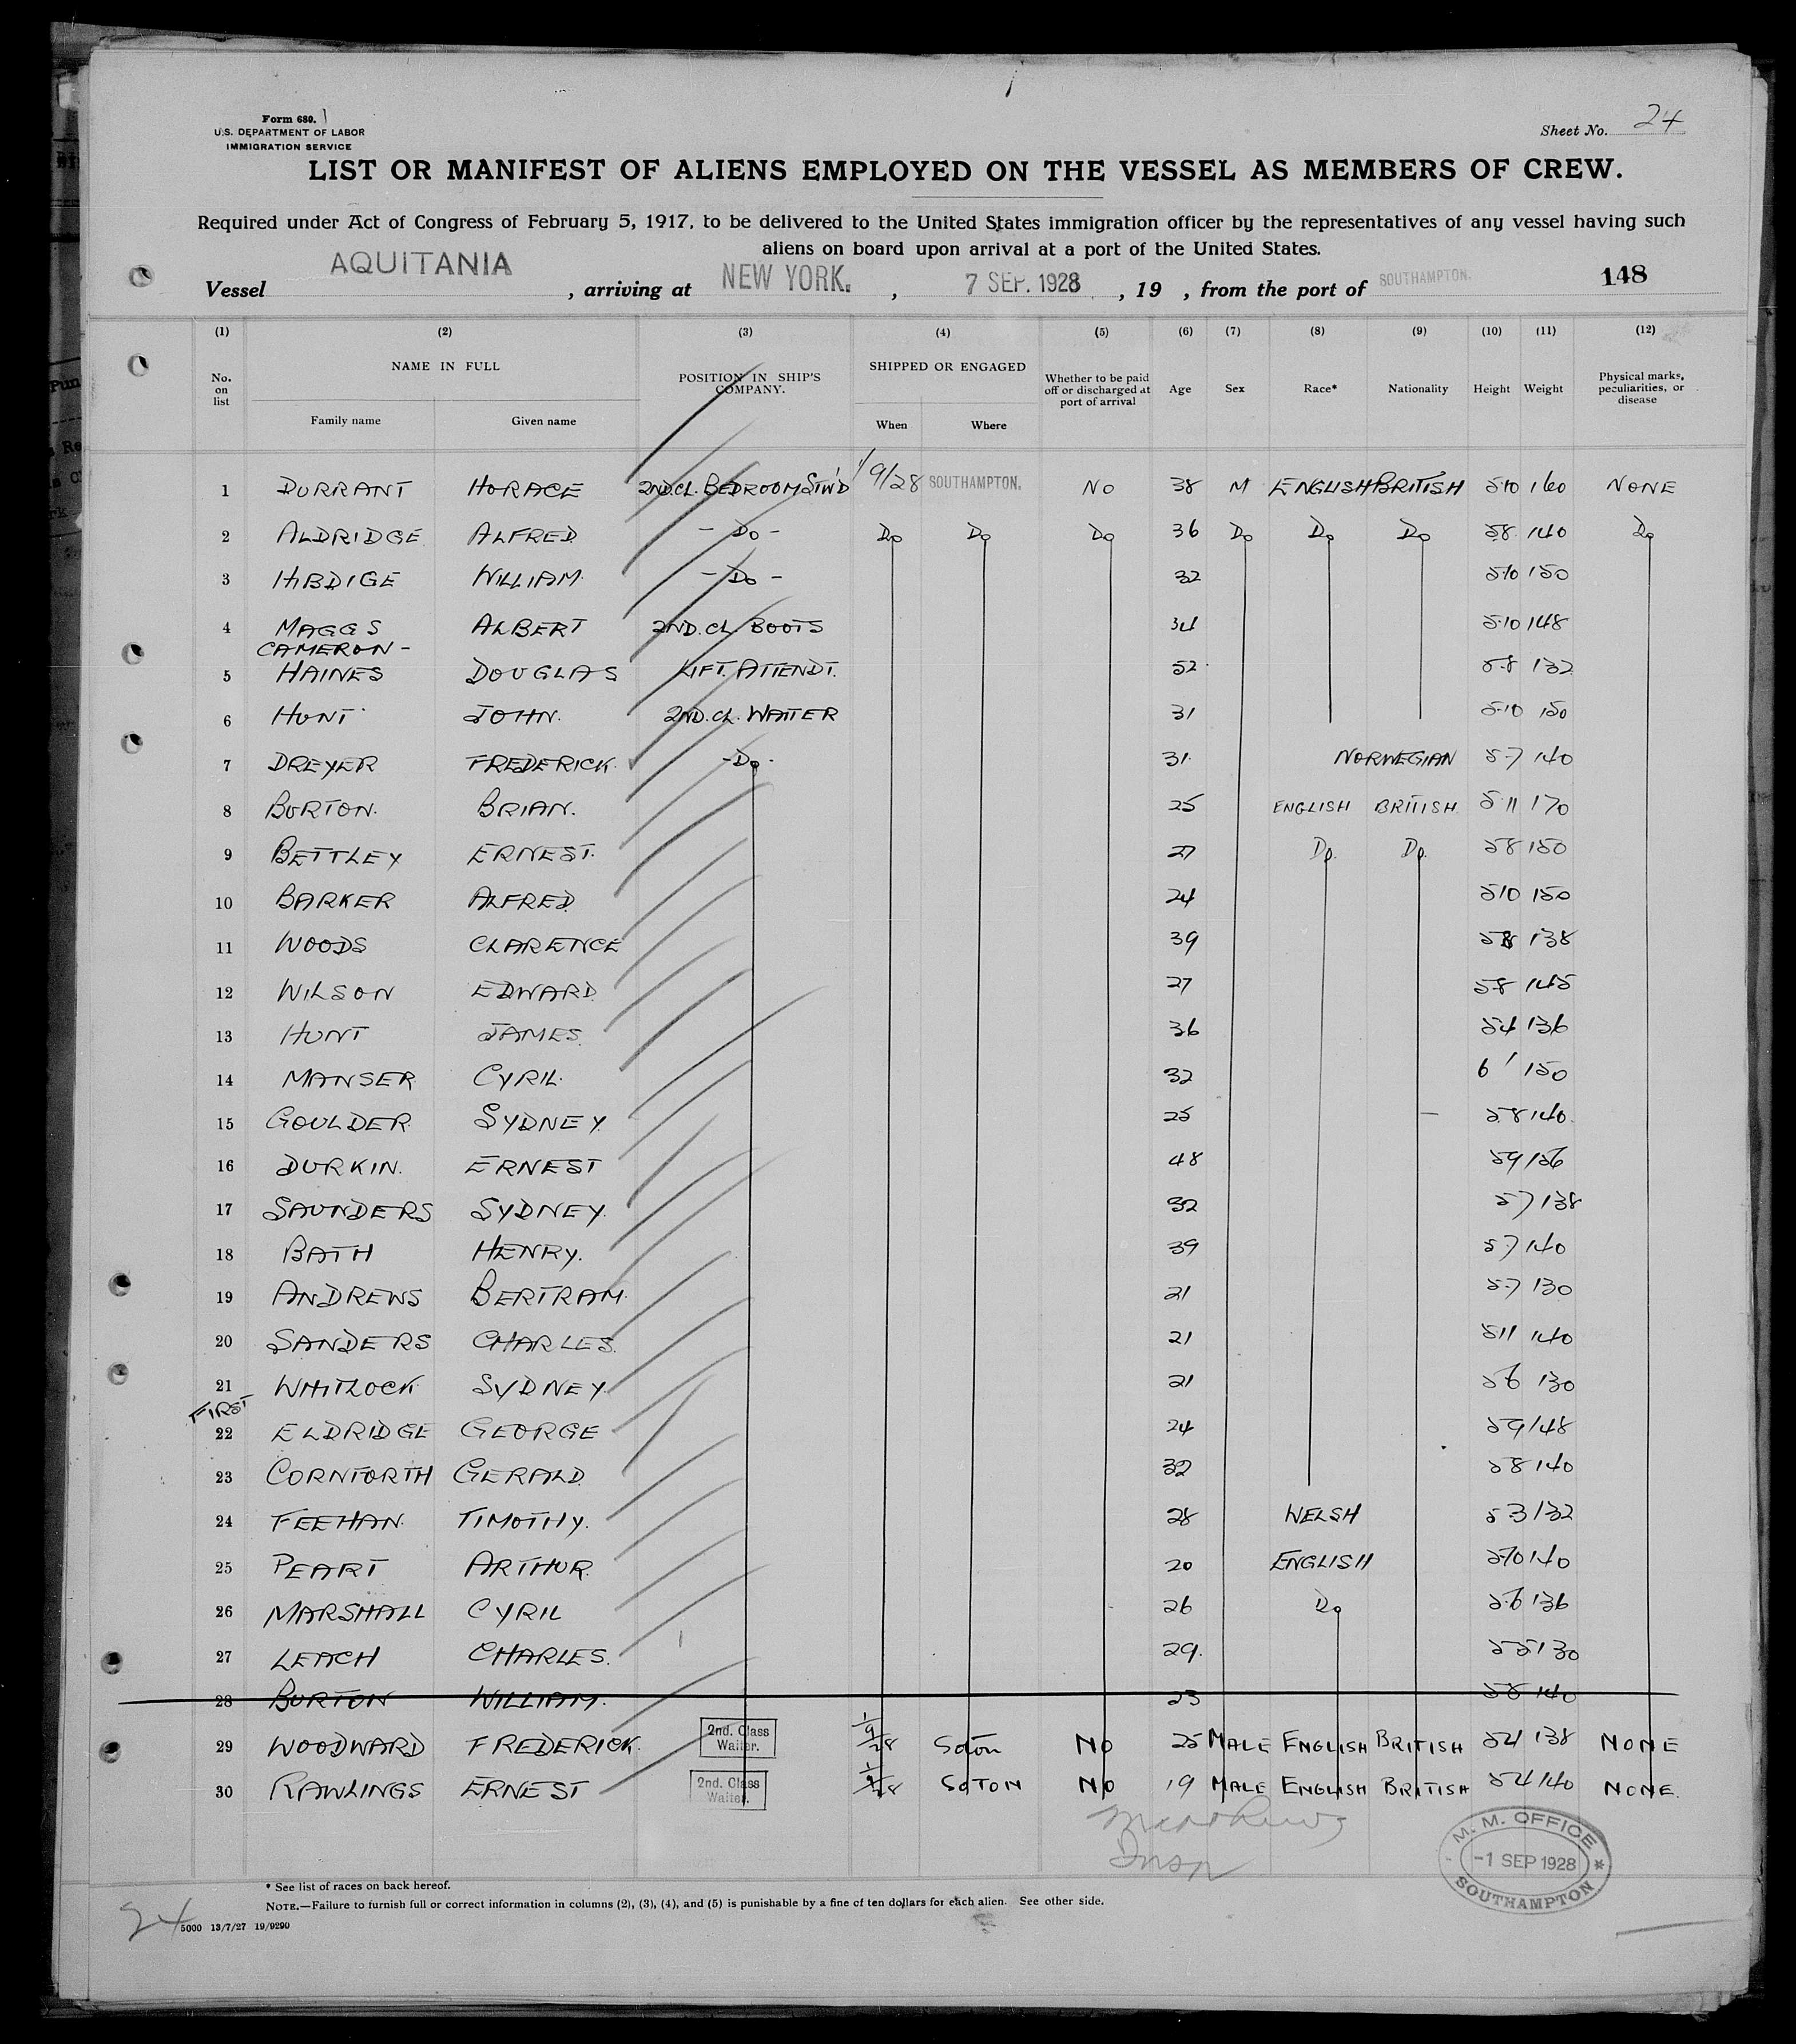 Form 680.
U.S. DEPARTMENT OF LABOR
IMMIGRATION SERVICE
Sheet No. 24
LIST OR MANIFEST OF ALIENS EMPLOYED ON THE VESSEL AS MEMBERS OF CREW.
Required under Act of Congress of February 5, 1917, to be delivered to the United States immigration officer by the representatives of any vessel having such
aliens on board upon arrival at a port of the United States.
Vessel AQUITANIA, arriving at NEW YORK., 7 SEP. 1928, 19 , from the port of SOUTHAMPTON. 148
(1) (2) (3) (4) (5) (6) (7) (8) (9) (10) (11) (12)
No. on list NAME IN FULL Family name Given name POSITION IN SHIP'S COMPANY. SHIPPED OR ENGAGED When Where Whether to be paid off or discharged at port of arrival Age Sex Race* Nationality Height Weight Physical marks, peculiarities, or disease
1 DURRANT HORACE 2ND.CL.BEDROOM STW'D 1/9/28 SOUTHAMPTON. NO 38 M ENGLISH BRITISH 5.10 160 NONE
2 ALDRIDGE ALFRED - Do - Do Do Do 36 Do Do Do 5.8 140 Do
3 HIBDIGE WILLIAM - Do - 32 5.10 150
4 MAGGS ALBERT 2ND.CL. BOOTS 34 5.10 148
CAMERON -
5 HAINES DOUGLAS LIFT. ATTENDT. 52 5.8 132
6 HUNT JOHN. 2ND.CL.WAITER 31 5.10 150
7 DREYER FREDERICK. -Do- 31 NORWEGIAN 5.7 140
8 BURTON. BRIAN. 25 ENGLISH BRITISH. 5.11 170
9 BETTLEY ERNEST. 27 Do. Do. 5 8 150
10 BARKER ALFRED. 24 5 10 150
11 WOODS CLARENCE 39 5 8 138
12 WILSON EDWARD. 27 5.8 145
13 HUNT JAMES. 36 5.4 136
14 MANSER CYRIL. 32 6' 150
15 GOULDER SYDNEY. 25 5.8 140.
16 DURKIN. ERNEST 48 5 9 156
17 SAUNDERS SYDNEY. 32 5 7 138
18 BATH HENRY. 39 5.7 140
19 ANDREWS BERTRAM. 21 5.7 130
20 SANDERS CHARLES. 21 5 11 140
21 WHITLOCK SYDNEY 21 5 6 130
FIRST
22 ELDRIDGE GEORGE 24 5 9 148
23 CORNFORTH GERALD. 32 5 8 140
24 FEEHAN. TIMOTHY. 28 WELSH 5 3 132
25 PEART ARTHUR. 20 ENGLISH 5.10 140
26 MARSHALL CYRIL 26 Do 5.6 136
27 LEACH CHARLES. 29. 5 5 130
28 BURTON WILLIAM. 23 5 8 140
29 WOODWARD FREDERICK. 2nd. Class Waiter. 1/9/28 Soton NO 25 MALE ENGLISH BRITISH 5 4 138 NONE
30 RAWLINGS ERNEST 2nd. Class Waiter. 1/9/28 SOTON NO 19 MALE ENGLISH BRITISH 5 4 140 NONE.
M. M. OFFICE
-1 SEP 1928 *
SOUTHAMPTON
* See list of races on back hereof.
NOTE.—Failure to furnish full or correct information in columns (2), (3), (4), and (5) is punishable by a fine of ten dollars for each alien. See other side.
24 5000 13/7/27 19/9290